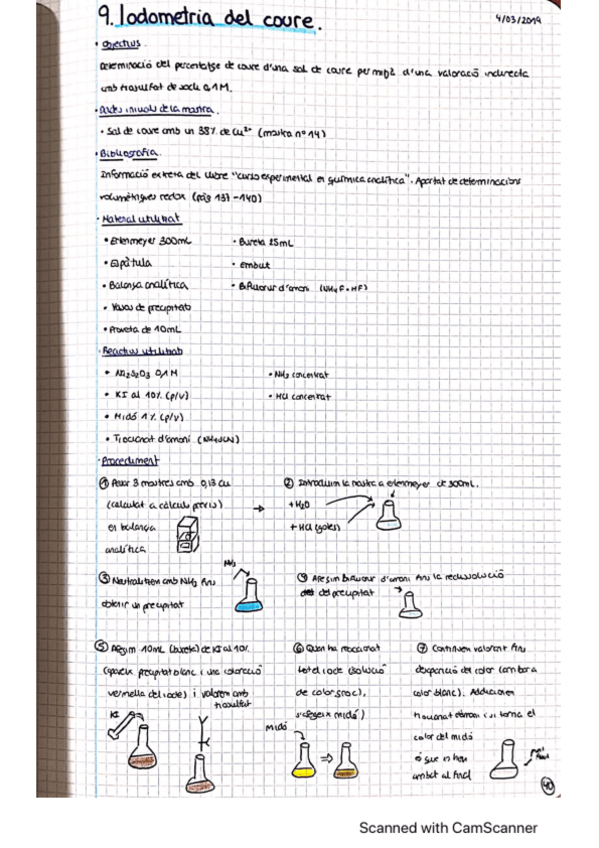 9. Iodometria del coure.
4/03/2019
· Objectius.
Determinació del percentatge de coure d'una sal de coure per mitjà d'una valoració indirecta
amb tiosulfat de sodi 0,1M.
· Dades inicials de la mostra.
• Sal de coure amb un 38% de Cu²⁺ (mostra nº 14)
· Bibliografia.
Informació extreta del llibre "curso experimental en química analítica". Apartat de determinacions
volumètriques redox (pàg 137-140)
· Material utilitzat
• Erlenmeyer 300mL
• Bureta 25mL
• Espàtula
• embut
• Balança analítica
• Bifluorur d'amoni (NH4F·HF)
• Vasos de precipitats
• Proveta de 10mL
· Reactius utilitzats
• Na2S2O3 0,1M
• NH3 concentrat
• KI al 10% (p/v)
• HCl concentrat
• Midó 1% (p/v)
• Tiocianat d'amoni (NH4SCN)
· Procediment
① Pesar 3 mostres amb 0,13 Cu
(calculat a càlculs previs)
en balança
analítica
② Introduim la mostra a erlenmeyer de 300mL.
+ H2O
+ HCl (gotes)
③ Neutralitzem amb NH3 fins
obtenir un precipitat
NH3
④ Afegim bifluorur d'amoni fins la redissolució
del precipitat
⑤ Afegim 10mL (bureta) de KI al 10%
(apareix precipitat blanc i una coloració
vermella del iode) i valorem amb
tiosulfat
KI
⑥ Quan ha reaccionat
tot el iode (solució
de color groc),
s'afegeix midó)
Midó
⑦ Continuem valorant fins
desaparició del color (ambarà
color blanc). Addicionem
tiocianat d'amoni i si torna el
color del midó
és que no hem
arribat al final
40
Scanned with CamScanner